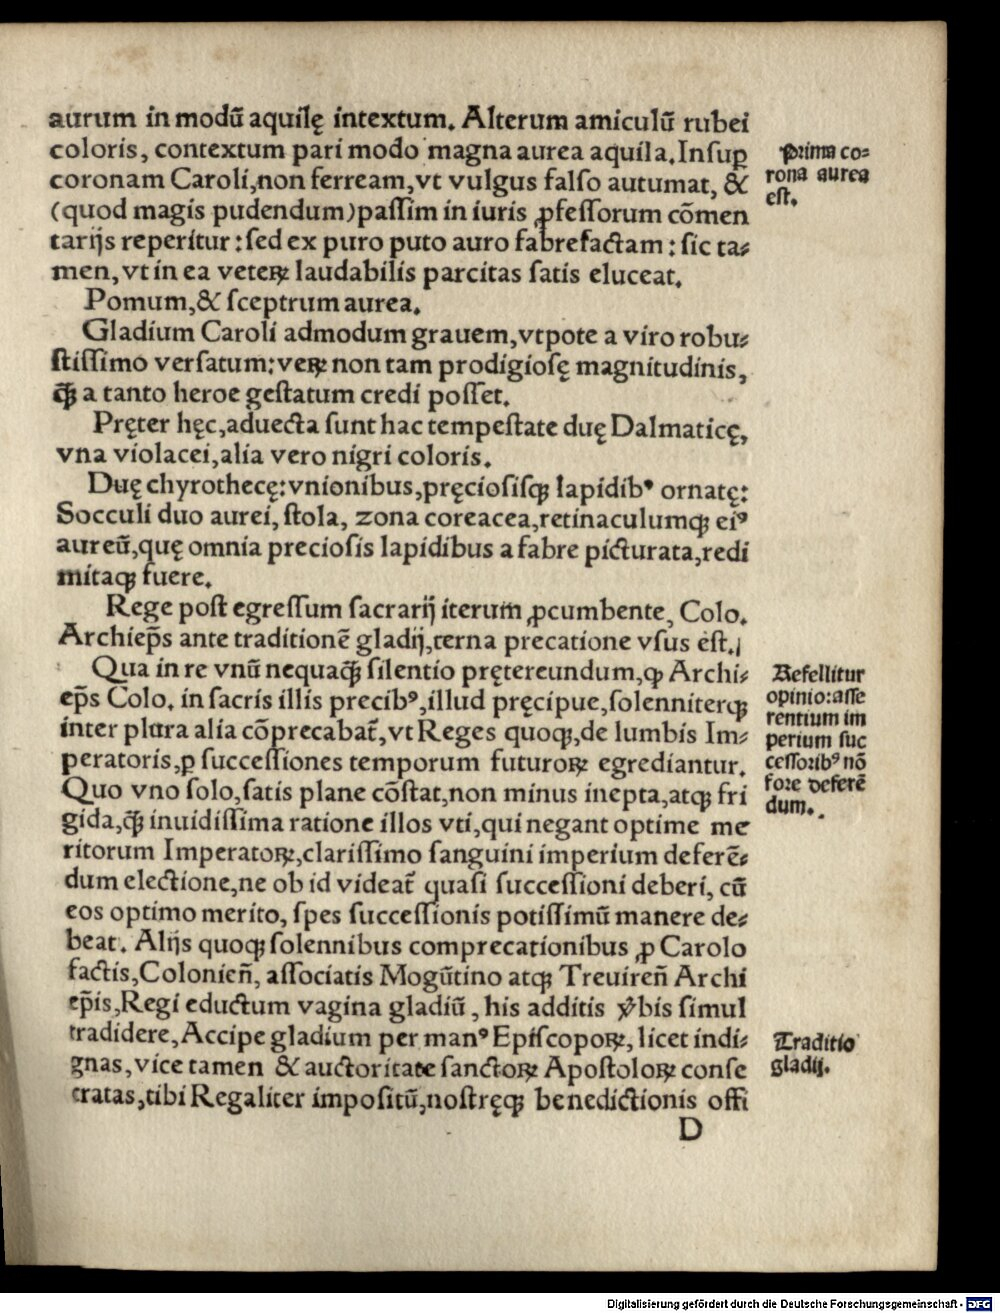 aurum in modū aquilę intextum. Alterum amiculū rubei
coloris, contextum pari modo magna aurea aquila. Insuꝑ
coronam Caroli, non ferream, vt vulgus falso autumat, &
(quod magis pudendum) passim in iuris ꝓfessorum cōmen
tarijs reperitur: sed ex puro puto auro fabrefactam: sic ta-
men, vt in ea veterꝝ laudabilis parcitas satis eluceat.
Pomum, & sceptrum aurea.
Gladium Caroli admodum grauem, vtpote a viro robu-
stissimo versatum: verꝝ non tam prodigiosę magnitudinis,
q̄ꝫ a tanto heroe gestatum credi posset.
Pręter hęc, aduecta sunt hac tempestate duę Dalmaticę,
vna violacei, alia vero nigri coloris.
Duę chyrothecę: vnionibus, pręciosisqꝫ lapidibꝰ ornatę:
Socculi duo aurei, stola, zona coreacea, retinaculumqꝫ eiꝰ
aureū, quę omnia preciosis lapidibus afabre picturata, redi
mitaqꝫ fuere.
Rege post egressum sacrarij iterum ꝓcumbente, Colo.
Archiep̄s ante traditionē gladij, terna precatione vsus est.
Qua in re vnū nequaq̄ꝫ silentio prętereundum, ꝙ Archi-
ep̄s Colo. in sacris illis precibꝰ, illud pręcipue, solenniterqꝫ
inter plura alia cōprecabat̄, vt Reges quoqꝫ, de lumbis Im-
peratoris, ꝑ successiones temporum futurorꝝ egrediantur.
Quo vno solo, satis plane cōstat, non minus inepta, atqꝫ fri
gida, q̄ꝫ inuidissima ratione illos vti, qui negant optime me
ritorum Imperatorꝝ, clarissimo sanguini imperium deferē-
dum electione, ne ob id videat̄ quasi successioni deberi, cū
eos optimo merito, spes successionis potissimū manere de-
beat. Alijs quoqꝫ solennibus comprecationibus ꝓ Carolo
factis, Colonieñ, associatis Mogūtino atqꝫ Treuireñ Archi
ep̄is, Regi eductum vagina gladiū, his additis v̄bis simul
tradidere, Accipe gladium per manꝰ Episcoporꝝ, licet indi-
gnas, vice tamen & auctoritate sanctorꝝ Apostolorꝝ conse
cratas, tibi Regaliter impositū, nostręqꝫ benedictionis offi
D
Prima co-
rona aurea
est.
Refellitur
opinio: asse
rentium im
perium suc
cessoribꝰ nō
fore deferē
dum.
Traditio
gladij.
Digitalisierung gefördert durch die Deutsche Forschungsgemeinschaft - DFG